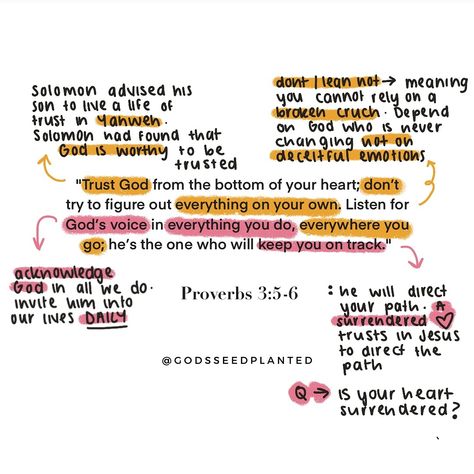 Solomon advised his
son to live a life of
trust in Yahweh.
Solomon had found that
God is worthy to be
trusted
dont / lean not → meaning
you cannot rely on a
broken cruch. Depend
on God who is never
changing not on
deceitful emotions
"Trust God from the bottom of your heart; don't
try to figure out everything on your own. Listen for
God's voice in everything you do, everywhere you
go; he's the one who will keep you on track."
acknowledge
God in all we do.
invite him into
our lives DAILY
Proverbs 3:5-6
@GODSSEEDPLANTED
: he will direct
your path. A
surrendered ♡
trusts in Jesus
to direct the
path
Q → Is your heart
surrendered?